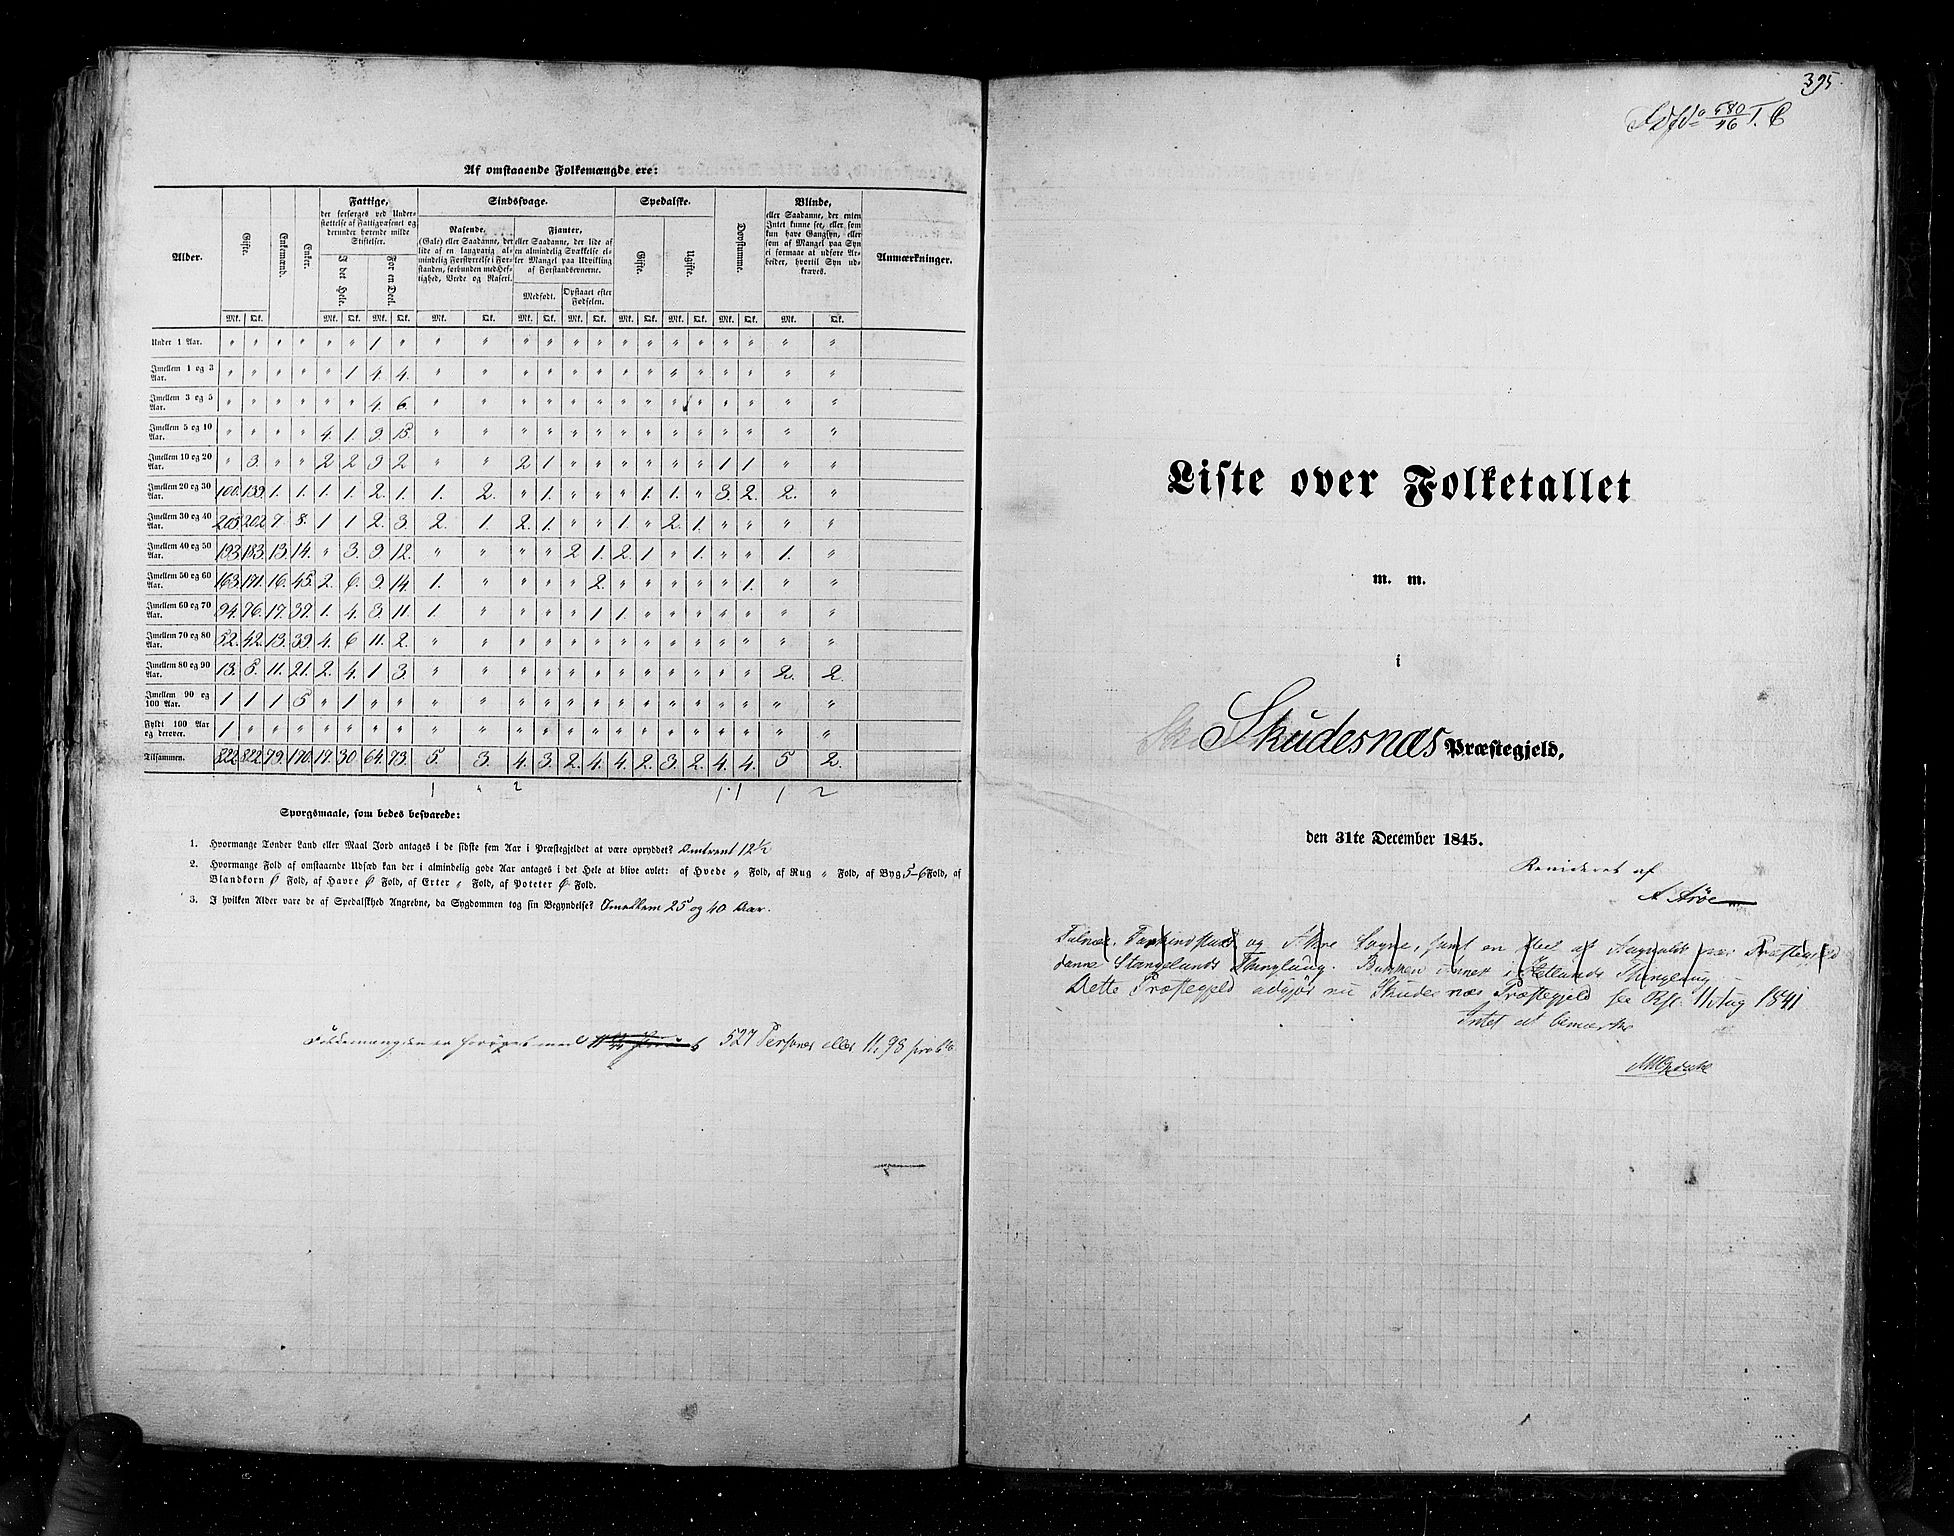 Af omstaaende Folkemængde ere:
Alder. Gifte. Enkemænd. Enker. Fattige, der forsørges ved Understøttelse af Fattigvæsenet og derunder hørende milde Stiftelser. Sindssvage. Spedalske. Døvstumme. Blinde, eller Saadanne, der enten Intet kunne see, eller som kun have Gangsyn, eller som af Mangel paa Syn ei formaae at udføre Arbeider, hvortil Syn udkræves. Anmærkninger.
I det Hele. For en Deel. Rasende. (Gale) eller Saadanne, der lide af en langvarig almindelig Forstyrrelse i Forstanden, forbunden med Heftighed, Vrede og Raseri. Fjanter, eller Saadanne, der lide af en almindelig Svækkelse eller Mangel paa Udvikling af Forstandsevnerne. Gifte. Ugifte.
Medfødt. Opstaaet efter Fødselen.
Mk. Qk. Mk. Qk. Mk. Qk. Mk. Qk. Mk. Qk. Mk. Qk. Mk. Qk. Mk. Qk. Mk. Qk. Mk. Qk.
Under 1 Aar. " " " " " " 1 " " " " " " " " " " " " " " "
Imellem 1 og 3 Aar. " " " " " 1 4. 4. " " " " " " " " " " " " " "
Imellem 3 og 5 Aar. " " " " " " 4. 6. " " " " " " " " " " " " " "
Imellem 5 og 10 Aar. " " " " 4. 1. 9. 15. " " " " " " " " " " " " " "
Imellem 10 og 20 Aar. " 3. " " 2 2 9. 2 " " 2 1 " " " " " " 1 1 " "
Imellem 20 og 30 Aar. 100. 139. 1. 1. 1. 1. 2. 1. 1. 2. " 1. " " " 1. 1. " 3. 2. 2. "
Imellem 30 og 40 Aar. 205 202 7 8. 1 1 2. 3. 2. 1. 2. 1. " " 1. " 2. 1. " " " "
Imellem 40 og 50 Aar. 193. 183. 13. 14. " 3. 9. 12. " " " " 2 1. 2. 1 " 1. " " 1. "
Imellem 50 og 60 Aar. 163. 171. 16. 45. 2. 6. 9. 14. 1. " " " " 2. " " " " " 1. " "
Imellem 60 og 70 Aar. 94. 76. 17. 37. 1. 4. 3 11. 1. " " " " 1 1. " " " " " " "
Imellem 70 og 80 Aar. 52. 42. 13. 39. 4. 6 11. 2. " " " " " " " " " " " " " "
Imellem 80 og 90 Aar. 13. 5. 11. 21. 2. 4. 1 3. " " " " " " " " " " " " 2. 2.
Imellem 90 og 100 Aar. 1 1 1 5 " 1 " " " " " " " " " " " " " " " "
Fyldt 100 Aar og derover. 1 " " " " " " " " " " " " " " " " " " " " "
Tilsammen. 822 822 79. 170. 17. 30 64. 73. 5. 3. 4. 3. 2. 4. 4. 2. 3. 2. 4. 4. 5 2.
1 " 2 1 1 1 2
Spørgsmaale, som bedes besvarede:
1. Hvormange Tønder Land eller Maal Jord antages i de sidste fem Aar i Præstegjeldet at være opryddet? Omtrent 12½
2. Hvormange Fold af omstaaende Udsæd kan der i almindelig gode Aar antages i det Hele at blive avlet: af Hvede " Fold, af Rug " Fold, af Byg 5-6 Fold, af
Blandkorn 6 Fold, af Havre 6 Fold, af Erter " Fold, af Poteter 6 Fold.
3. I hvilken Alder vare de af Spedalskhed Angrebne, da Sygdommen tog sin Begyndelse? Imellem 25 og 40 Aar.
Folkemængden er forøget med 527 Personer eller 11,98 pro Ct.
395.
680/46 T. C
Liste over Folketallet
m. m.
i
Skudesnæs Præstegjeld,
den 31te December 1845.
Revideret af
A Arøe
Falnæs, Færkindstad og Akre Sogne, samt en Deel af Augvaldsnæs Præstegjeld
danne Stangelands Thinglaug. Bukken annex i Hetlands Thinglaug
Dette Præstegjeld udgjør nu Skudesnæs Præstegjeld see Rst. 11 Aug 1841
Intet at bemærke